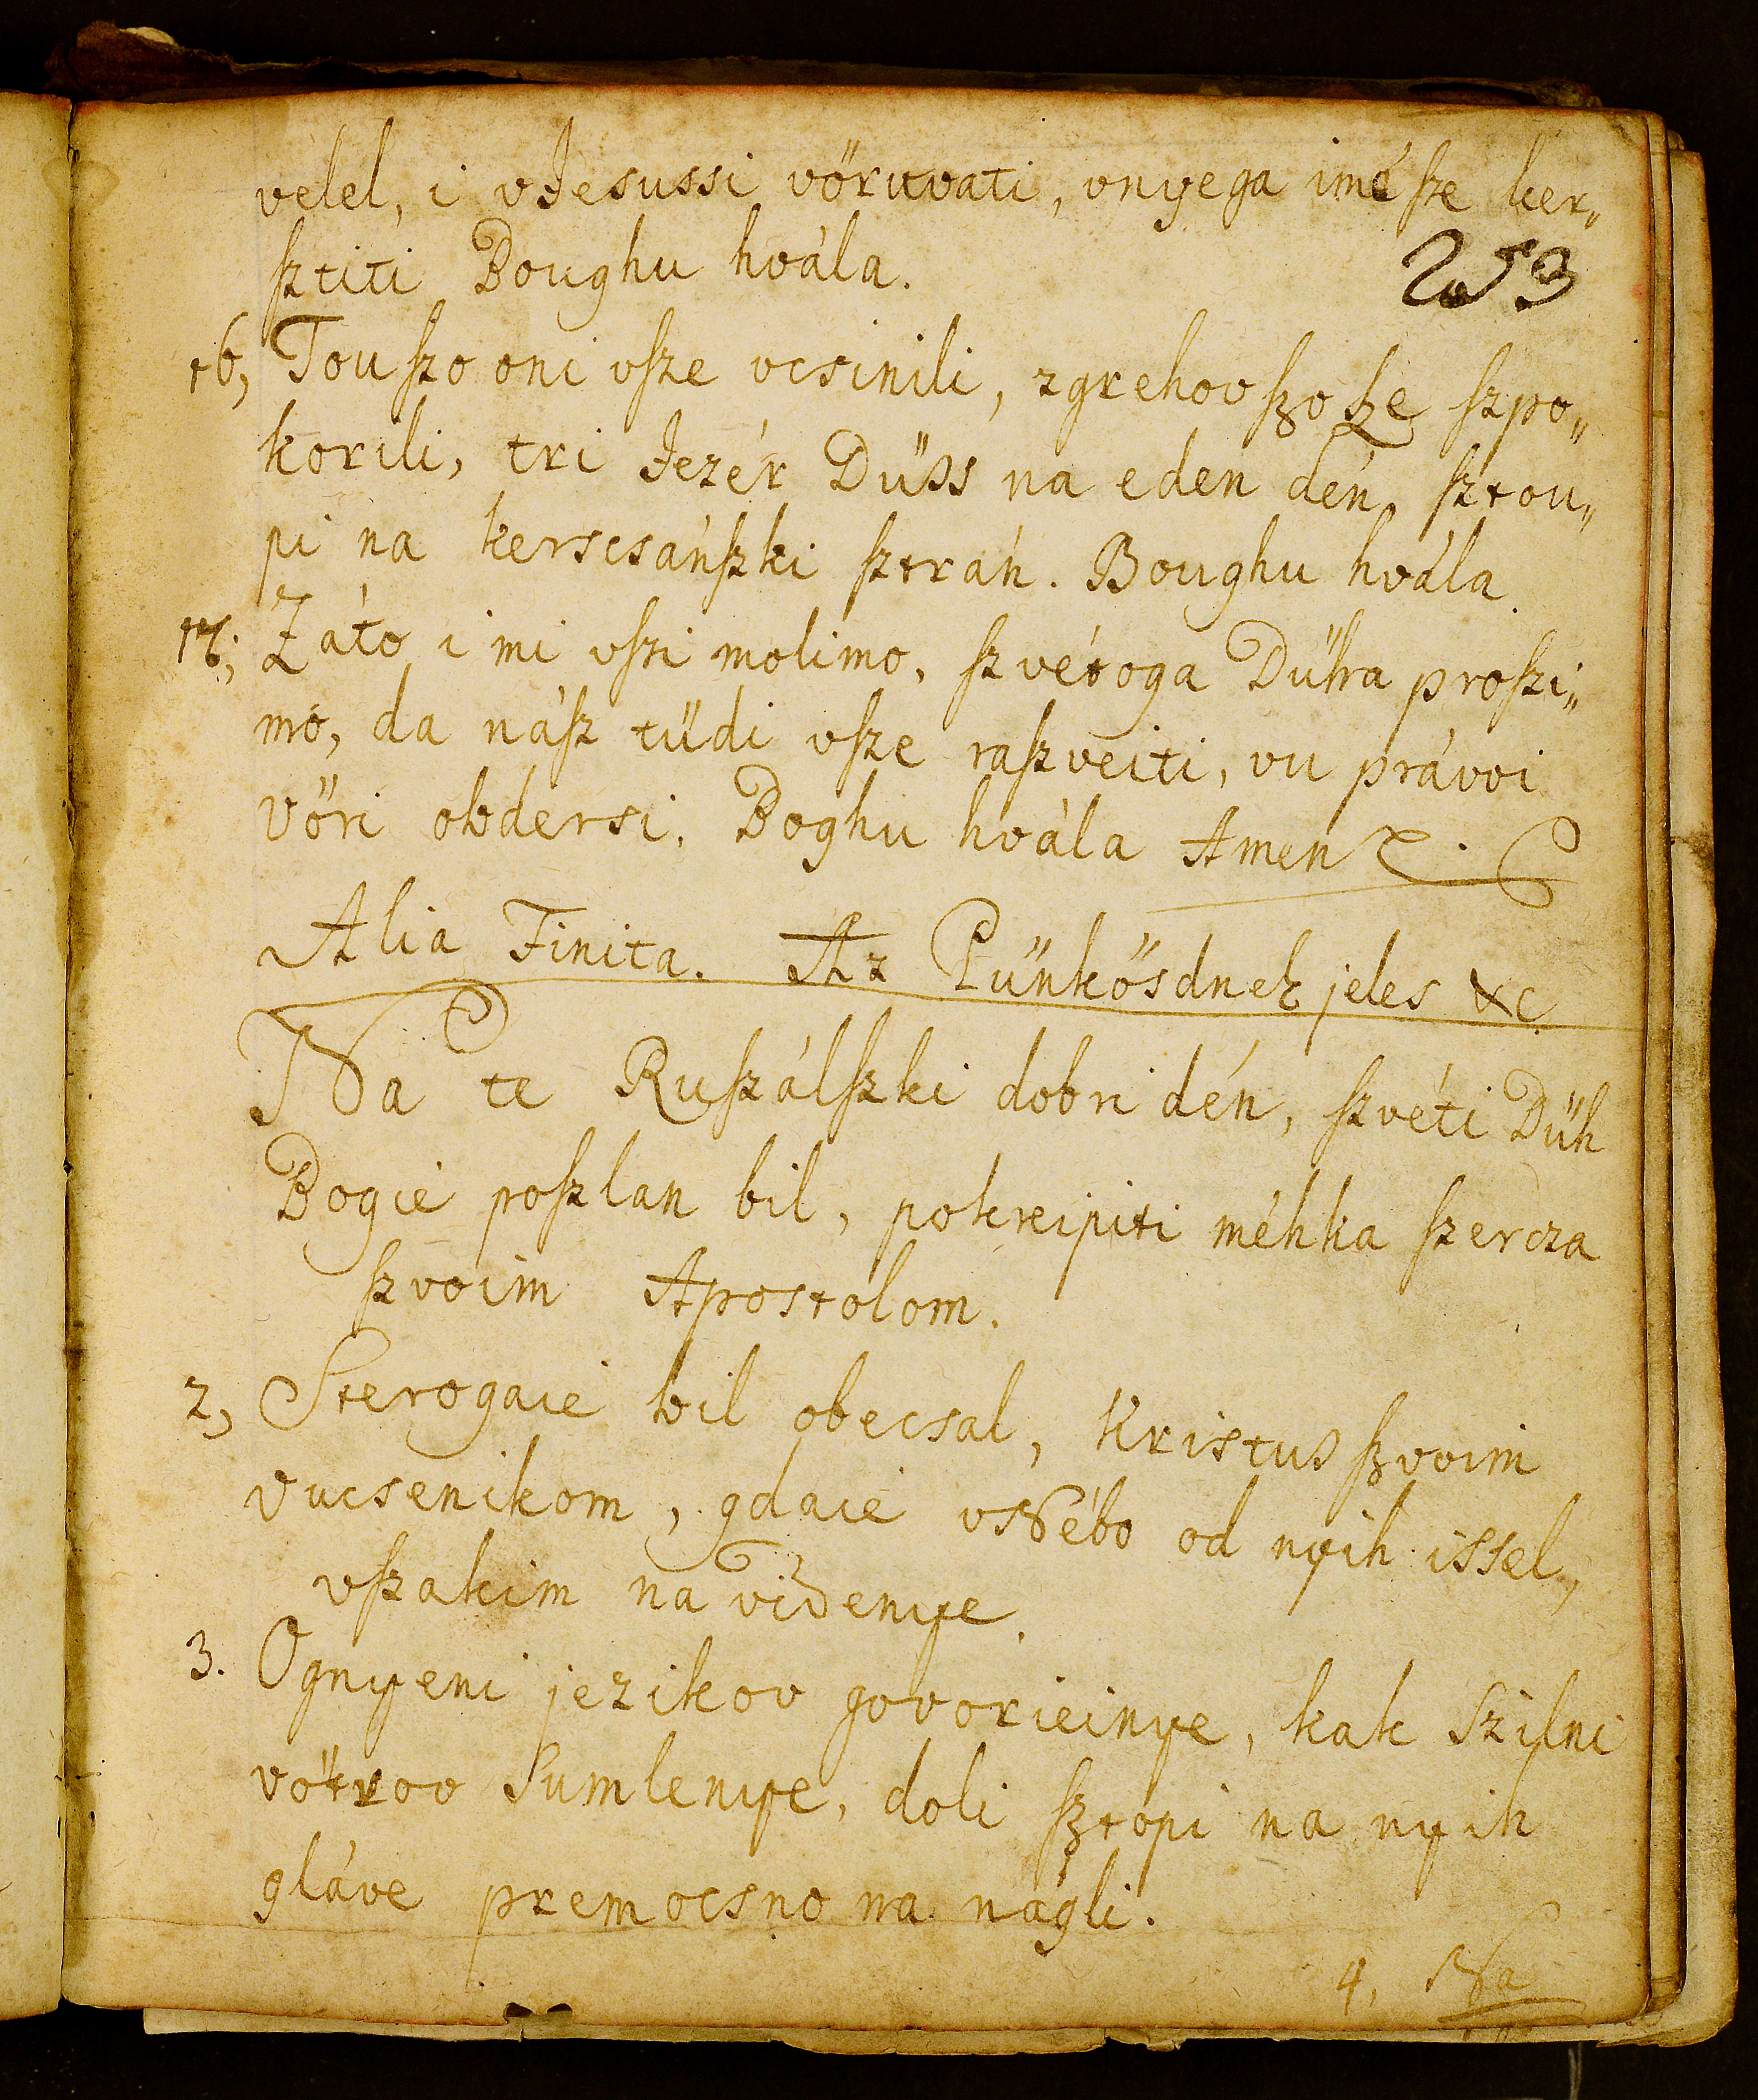 velel, i vJesussi vörüvati, vnyega imé ſze ker„
ſztiti Boughu hvála.
253
16, Tou ſzo oni vſze vcsinili, zgrehov ſzo ſze ſzpo„
korili, tri Jezér Düss na eden dén, ſztou„
pi na kerscsánſzki ſztrán. Boughu hvála.
17; Záto i mi vſzi molimo, ſzvétoga Dűha proſzi„
mo, da náſz tüdi vſze raſzveiti, vu právvi
vöri obdersi. Boghu hvála Amen
Alia Finita. Az Pünkösdnek jeles &c
Na te Ruſzálſzki dobri dén, ſzvéti Düh
Bogie poſzlan bil, pokreipiti méhka ſzercza
ſzvoim Apostolom.
2, Sterogaie bil obecsal, Kristus ſzvoim
vucsenikom, gdaie vNébo od nyih issel,
vſzakim na videnye.
3. Ognyeni jezikov govorieinye, kak Szilni
vötrov Sumlenye, doli ſztopi na nyih
gláve premocsno na nágli.
4, Na